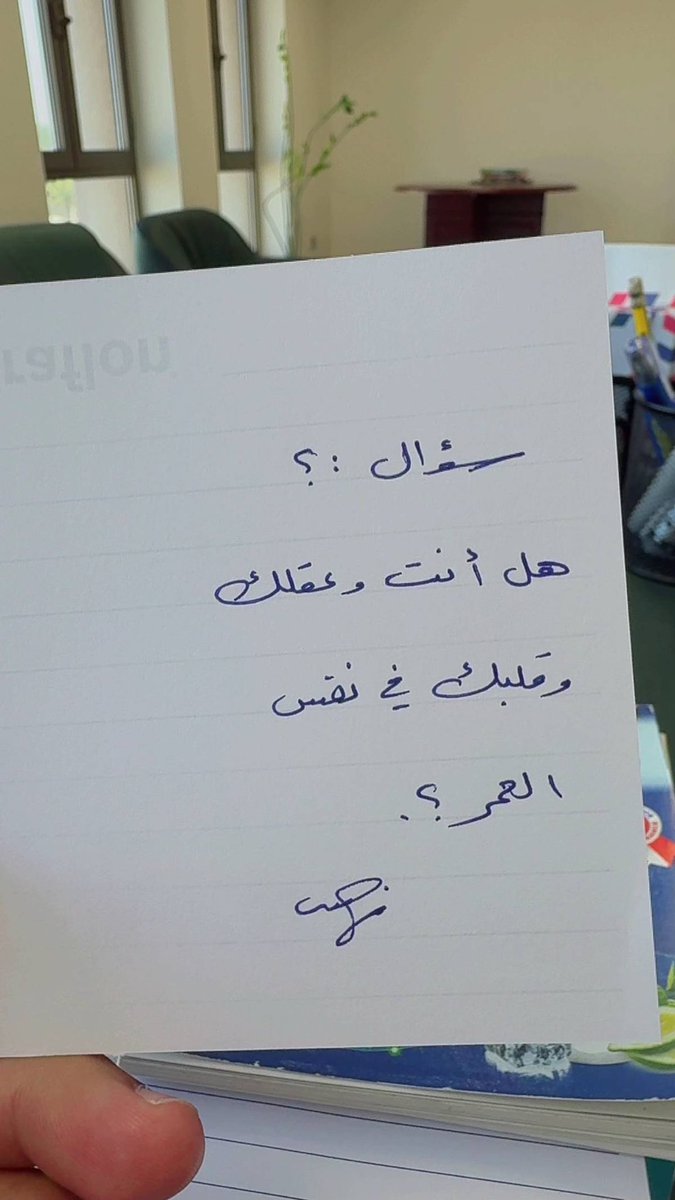 سؤال :؟
هل أنت وعقلك
وقلبك في نفس
العمر ؟.